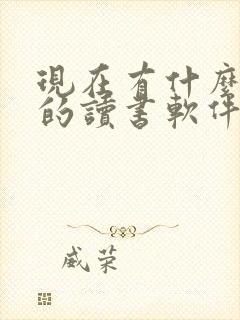 現在有什麼
的讀書軟件
威荣